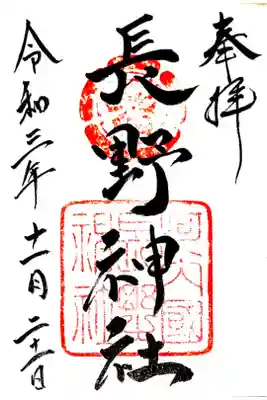 奉拝
長野神社
令和三年
十一月二十一日